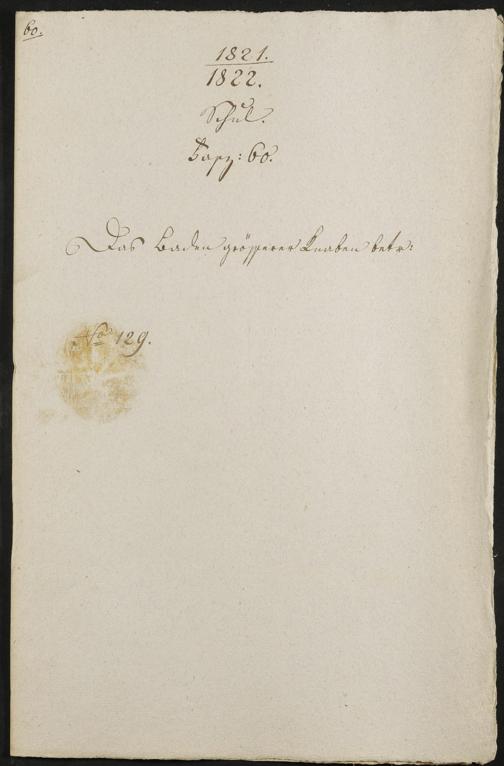 60.
1821.
1822.
Schul.
Fasz: 60.
Das Baden größerer Knaben betr:
No 129.